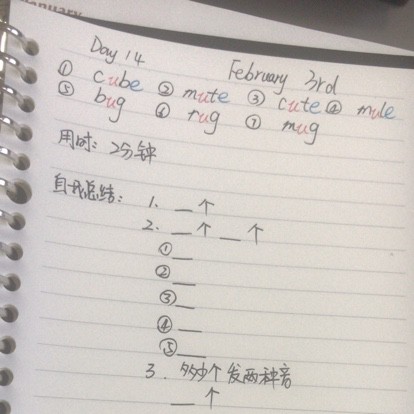 Day 14 February 3rd
① cube ② mute ③ cute ④ mule
⑤ bug ⑥ rug ⑦ mug
用时: 2分钟
自我总结: 1. __个
2. __个 __个
① __
② __
③ __
④ __
⑤ __
3. 多少个发两种音
__个